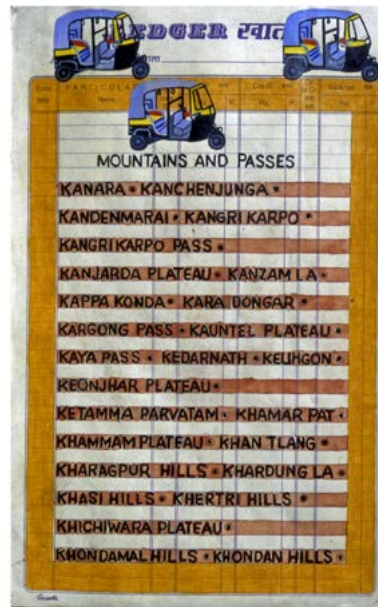 LEDGER खाता
MOUNTAINS AND PASSES
KANARA • KANCHENJUNGA •
KANDENMARAI • KANGRI KARPO •
KANGRI KARPO PASS •
KANJARDA PLATEAU • KANZAM LA •
KAPPA KONDA • KARA DONGAR •
KARGONG PASS • KAUNTEL PLATEAU •
KAYA PASS • KEDARNATH • KEUHGON •
KEONJHAR PLATEAU •
KETAMMA PARVATAM • KHAMAR PAT •
KHAMMAM PLATEAU • KHAN TLANG •
KHARAGPUR HILLS • KHARDUNG LA •
KHASI HILLS • KHERTRI HILLS •
KHICHIWARA PLATEAU •
KHONDAMAL HILLS • KHONDAN HILLS •